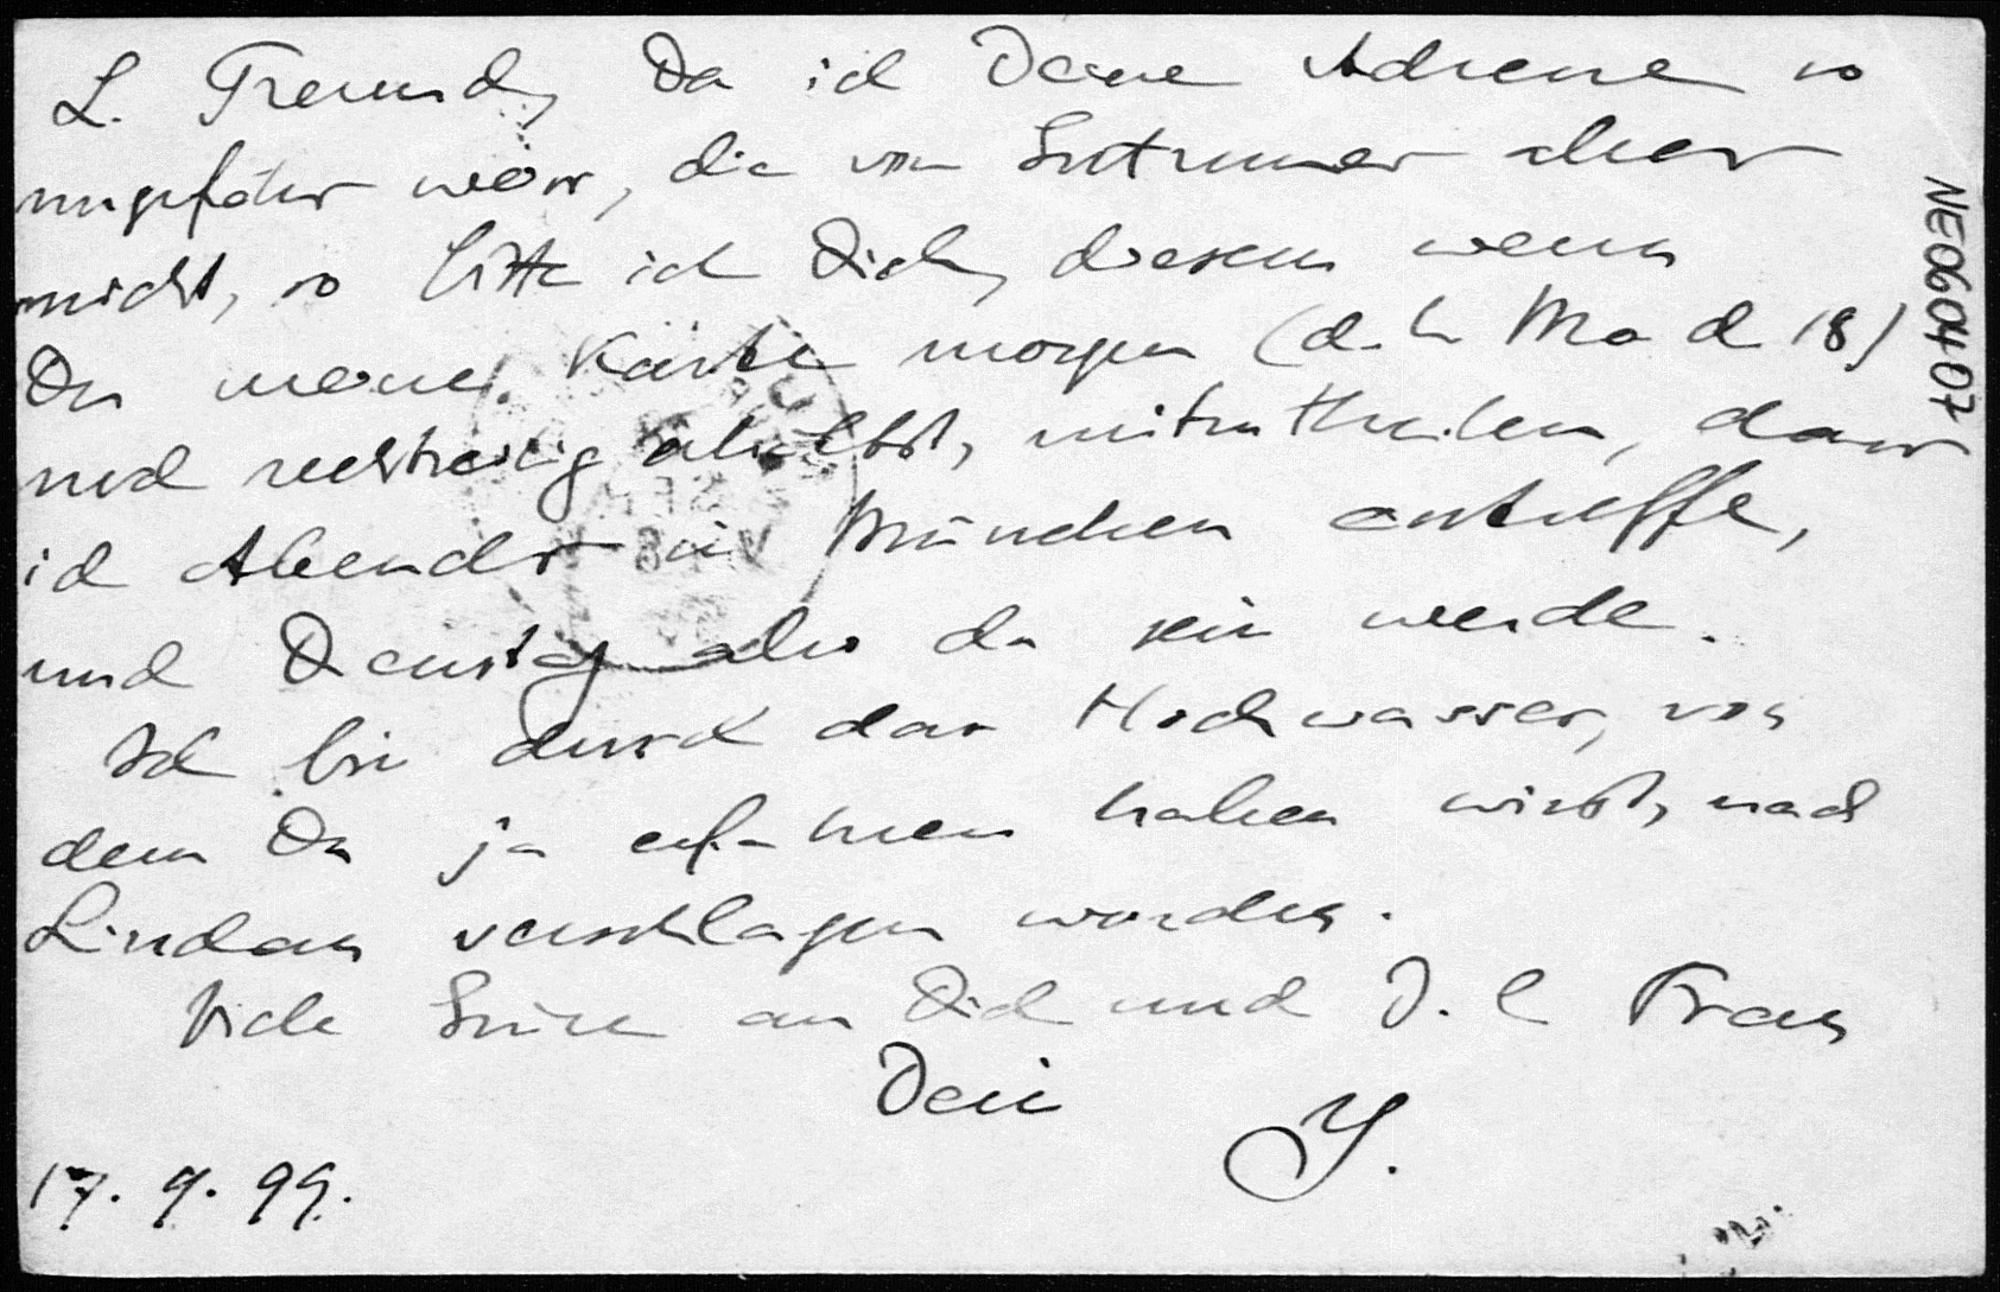 L. Freund, Da ich Deine Adresse so
ungefähr weiss, die von Gutzmer aber
nicht, so bitte ich Dich, diesem wenn
Du meine Karte morgen (d. h. Mo d. 18)
noch rechtzeitig erhältst, mitzutheilen, dass
ich Abends in München eintreffe,
und Dienstag also da sein werde.
Ich bin durch das Hochwasser, von
dem Du ja erfahren haben wirst, nach
Lindau verschlagen worden.
Viele Grüsse an Dich und D. l. Frau
Dein
17. 9. 99.
NE060407